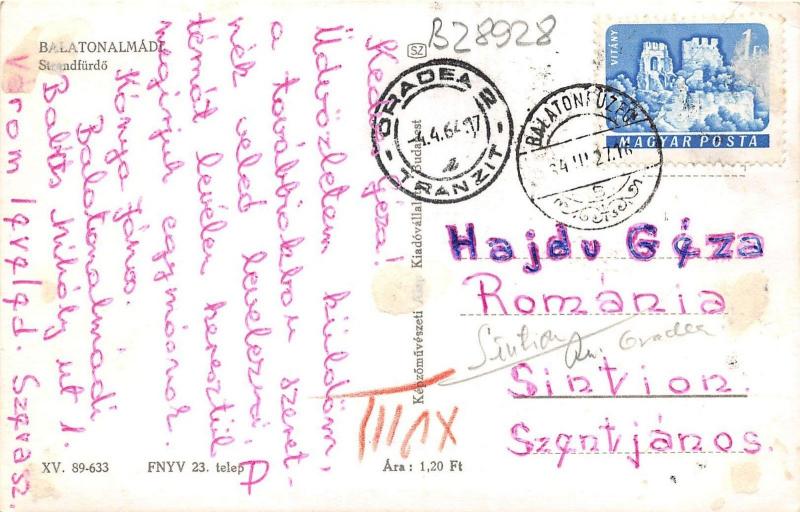 BALATONALMÁDI
Strandfürdő
SZ
BZ8928
VITÁNY
1 Ft
MAGYAR POSTA
ORADEA 2
4.4.64.17
TRANZIT
BALATONFŰZFŐ
64 III 27.18
Kedves Géza!
Üdvözletem küldöm,
a továbbiakban szeret-
nék veled levelezni. A
témát levelen keresztül
megírjuk egymásnak.
Kónya János.
Balatonalmádi
Balás Mihály út 1.
Várom leveled. Szervusz.
Képzőművészeti Alap Kiadóvállalata, Budapest
Hajdu Géza
Románia
Sintion
Oradea
Sintion.
Szentjános.
III/IX
XV. 89-633
FNYV 23. telep
Ára : 1,20 Ft